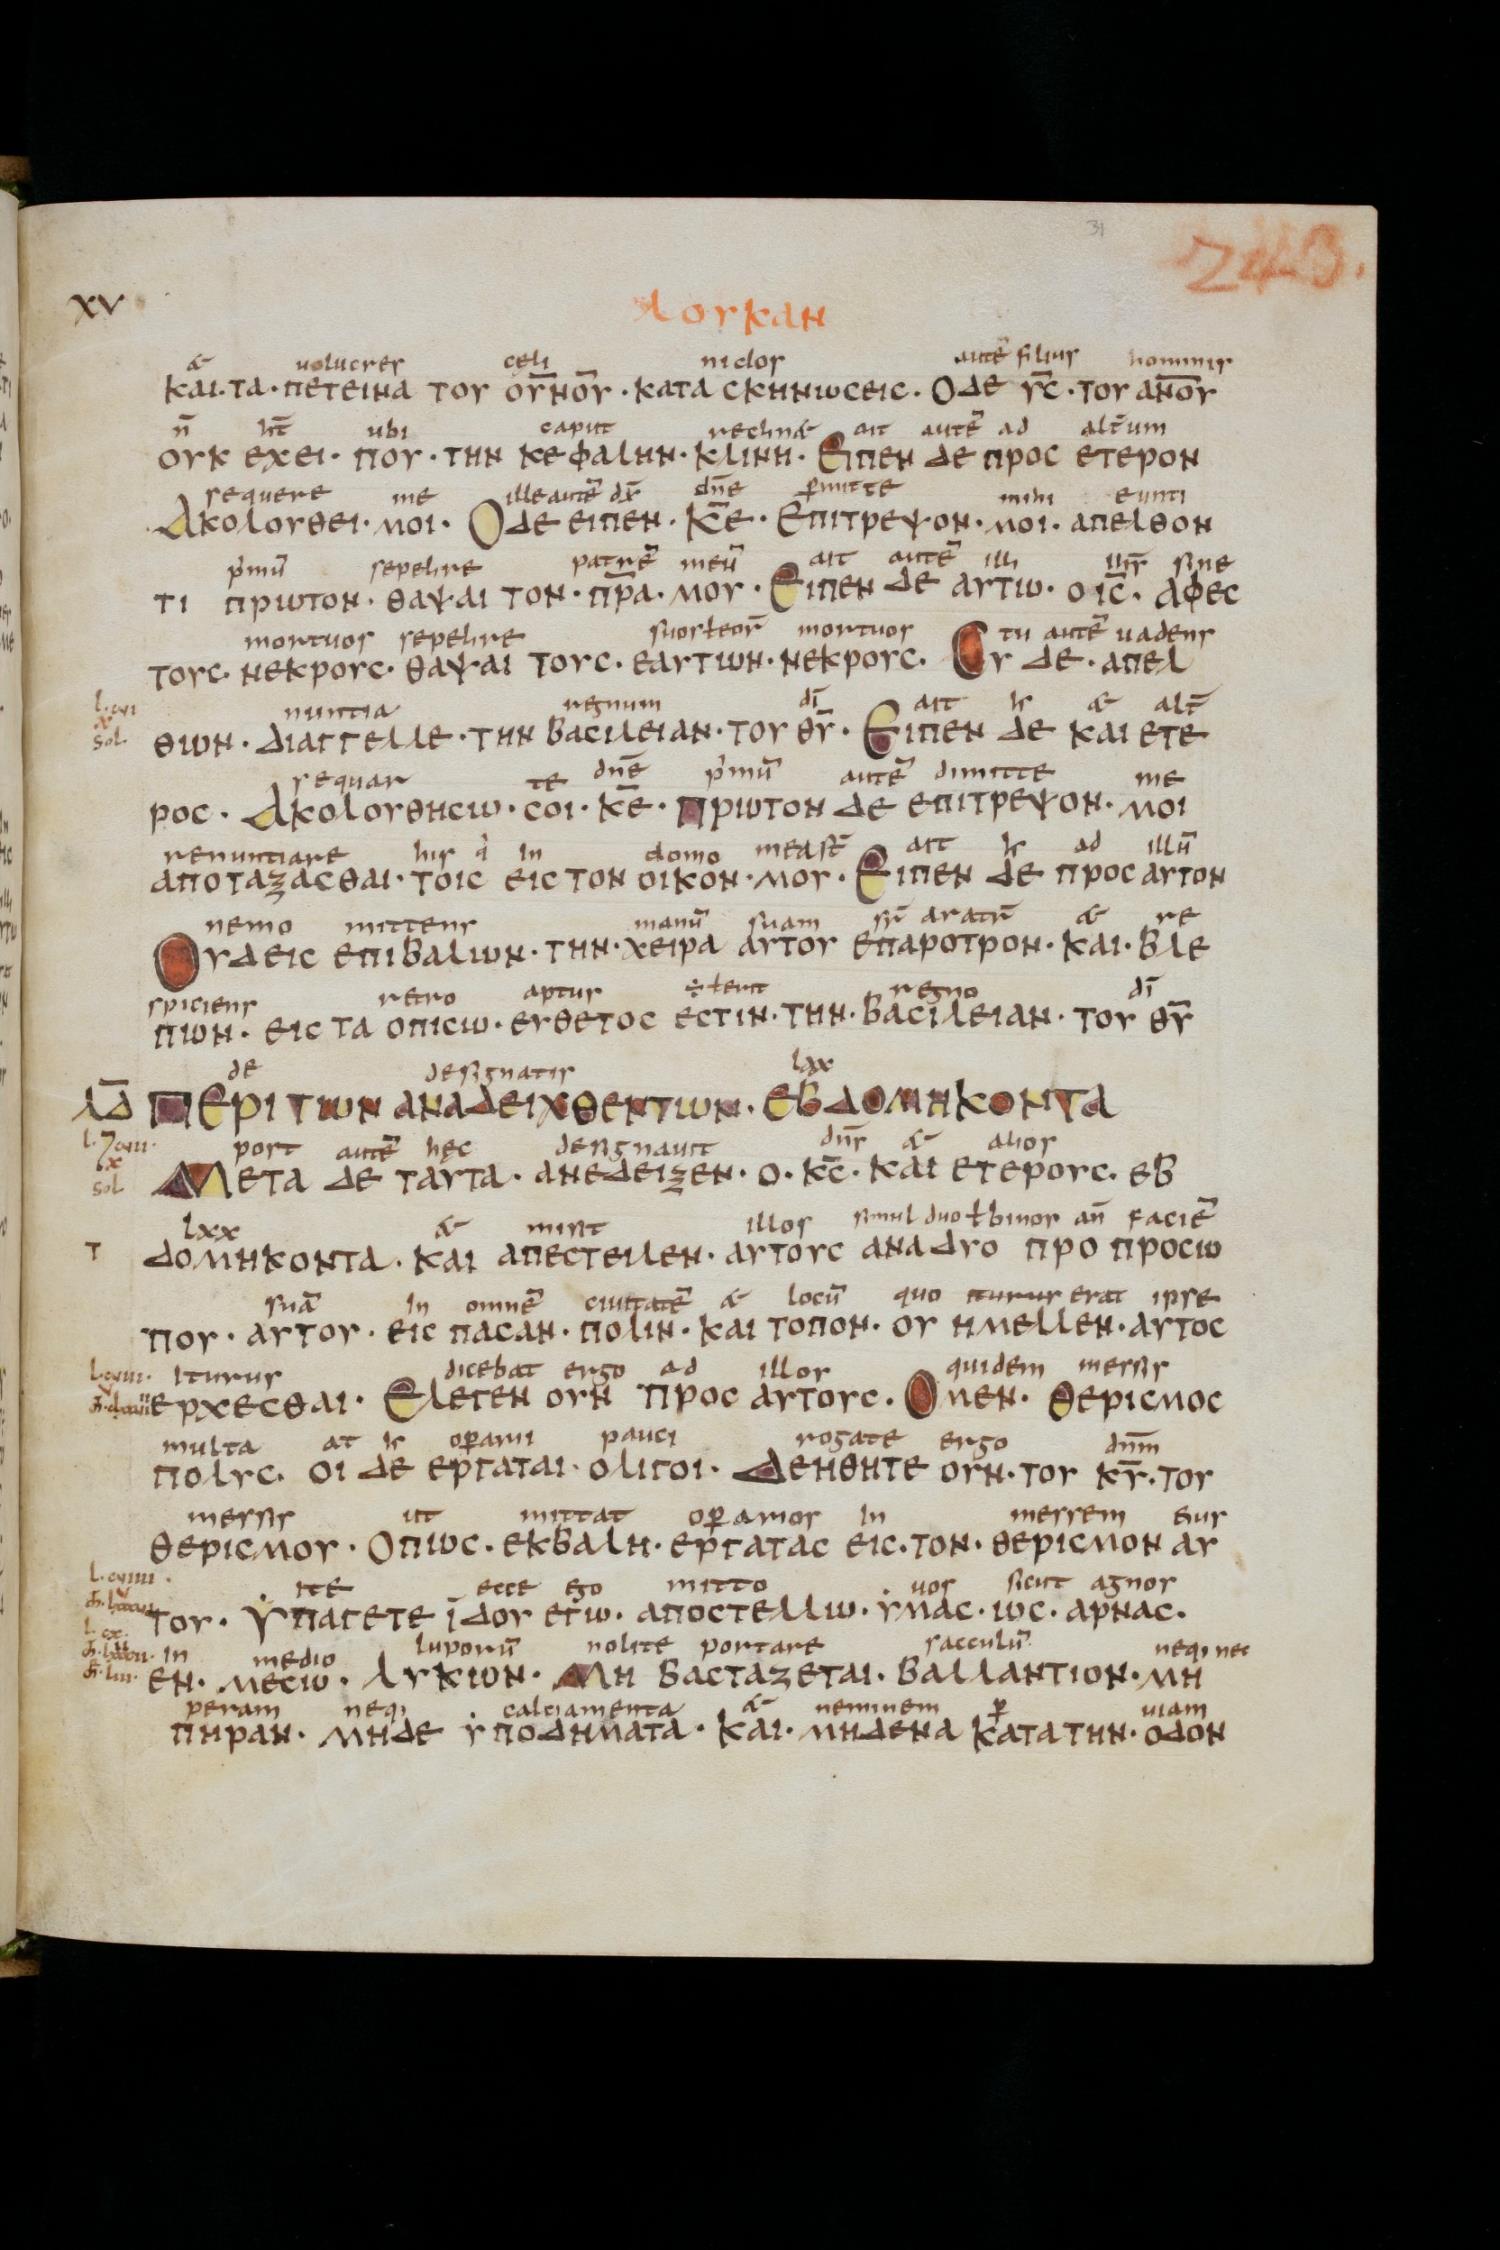 31
243.
XV
ΛΟΥΚΑΝ
& uolucres celi nidos autē filius hominis
ΚΑΙ·ΤΑ·ΠΕΤΕΙΝΑ ΤΟΥ ΟΥ̅ΝΟ̅Υ·ΚΑΤΑ ΣΚΗΝΩΣΕΙΣ·ΟΔΕ Υ̅Σ·ΤΟΥ ΑΝ̅Ο̅Υ
n̄ ht̄ ubi caput reclin& ait autē ad alt̄um
ΟΥΚ ΕΧΕΙ·ΠΟΥ·ΤΗΝ ΚΕΦΑΛΗΝ·ΚΛΙΝΗ·ΕΙΠΕΝ ΔΕ ΠΡΟΣ ΕΤΕΡΟΝ
sequere me ille autē dx̄ dn̄e p̱mitte mihi eunti
ΑΚΟΛΟΥΘΕΙ·ΜΟΙ·ΟΔΕ ΕΙΠΕΝ·Κ̅Ε·ΕΠΙΤΡΕΨΟΝ·ΜΟΙ·ΑΠΕΛΘΟΝ
p'mū sepelire patrē meū ait autē illi ihs̄ sine
ΤΙ ΠΡΩΤΟΝ·ΘΑΨΑΙ ΤΟΝ·Π̅Ρ̅Α·ΜΟΥ·ΕΙΠΕΝ ΔΕ ΑΥΤΩ·Ο Ι̅Σ·ΑΦΕΣ
mortuos sepelire suos ł eor̄ mortuos tu autē uadens
ΤΟΥΣ·ΝΕΚΡΟΥΣ·ΘΑΨΑΙ ΤΟΥΣ·ΕΑΥΤΩΝ·ΝΕΚΡΟΥΣ·ΣΥ ΔΕ·ΑΠΕΛ
l·cvi x sol· nuntia regnum dī ait h & alt̄
ΘΩΝ·ΔΙΑΓΓΕΛΛΕ·ΤΗΝ ΒΑΣΙΛΕΙΑΝ·ΤΟΥ Θ̅Υ·ΕΙΠΕΝ ΔΕ ΚΑΙ ΕΤΕ
sequar te dn̄e p'mū autē dimitte me
ΡΟΣ·ΑΚΟΛΟΥΘΗΣΩ·ΣΟΙ·Κ̅Ε·ΠΡΩΤΟΝ ΔΕ ΕΠΙΤΡΕΨΟΝ·ΜΟΙ
renuntiare his q' in domo mea st̄ ait h ad illū
ΑΠΟΤΑΞΑΣΘΑΙ·ΤΟΙΣ ΕΙΣ ΤΟΝ ΟΙΚΟΝ·ΜΟΥ·ΕΙΠΕΝ ΔΕ ΠΡΟΣ ΑΥΤΟΝ
nemo mittens manū suam sr̄ aratr̄ & re
ΟΥΔΕΙΣ ΕΠΙΒΑΛΩΝ·ΤΗΝ·ΧΕΙΡΑ ΑΥΤΟΥ ΕΠΑΡΟΤΡΟΝ·ΚΑΙ·ΒΛΕ
spiciens retro aptus ÷ ł erit regno dī
ΠΩΝ·ΕΙΣ ΤΑ ΟΠΙΣΩ·ΕΥΘΕΤΟΣ ΕΣΤΙΝ·ΤΗΝ·ΒΑΣΙΛΕΙΑΝ·ΤΟΥ Θ̅Υ
de designatis lxx
Λ̅Δ ΠΕΡΙ ΤΩΝ ΑΝΑΔΕΙΧΘΕΝΤΩΝ·ΕΒΔΟΜΗΚΟΝΤΑ
x sol post autē hęc designauit dn̄s & alios
ΜΕΤΑ ΔΕ ΤΑΥΤΑ·ΑΝΕΔΕΙΞΕΝ·Ο·Κ̅Σ·ΚΑΙ ΕΤΕΡΟΥΣ·ΕΒ
lxx & misit illos simul duo ł binos an̄ faciē
Τ ΔΟΜΗΚΟΝΤΑ·ΚΑΙ ΑΠΕΣΤΕΙΛΕΝ·ΑΥΤΟΥΣ ΑΝΑ ΔΥΟ ΠΡΟ ΠΡΟΣΩ
suā in omnē ciuitatē & locū quo iturus erat ipse
ΠΟΥ·ΑΥΤΟΥ·ΕΙΣ ΠΑΣΑΝ·ΠΟΛΙΝ·ΚΑΙ ΤΟΠΟΝ·ΟΥ ΗΜΕΛΛΕΝ·ΑΥΤΟΣ
l·cviii· iturus dicebat ergo ad illos quidem messis
ΕΡΧΕΣΘΑΙ·ΕΛΕΓΕΝ ΟΥΝ ΠΡΟΣ ΑΥΤΟΥΣ·ΟΜΕΝ·ΘΕΡΙΣΜΟΣ
multa at h op̱arii pauci rogate ergo dn̄m
ΠΟΛΥΣ·ΟΙ ΔΕ ΕΡΓΑΤΑΙ·ΟΛΙΓΟΙ·ΔΕΗΘΗΤΕ ΟΥΝ·ΤΟΥ Κ̅Υ·ΤΟΥ
messis ut mittat op̱arios in messem eius
ΘΕΡΙΣΜΟΥ·ΟΠΩΣ·ΕΚΒΑΛΗ·ΕΡΓΑΤΑΣ ΕΙΣ·ΤΟΝ·ΘΕΡΙΣΜΟΝ ΑΥ
l·cviiii· ite ecce ego mitto uos sicut agnos
ΤΟΥ·ΥΠΑΓΕΤΕ ΙΔΟΥ ΕΓΩ·ΑΠΟΣΤΕΛΛΩ·ΥΜΑΣ·ΩΣ·ΑΡΝΑΣ·
l·cx· in medio luporū nolite portare sacculū neq; nec
ΕΝ·ΜΕΣΩ·ΛΥΚΩΝ·ΜΗ ΒΑΣΤΑΖΕΤΑΙ·ΒΑΛΛΑΝΤΙΟΝ·ΜΗ
peram neq; calciamenta & neminem p̱ uiam
ΠΗΡΑΝ·ΜΗΔΕ ΥΠΟΔΗΜΑΤΑ·ΚΑΙ·ΜΗΔΕΝΑ ΚΑΤΑ ΤΗΝ·ΟΔΟΝ